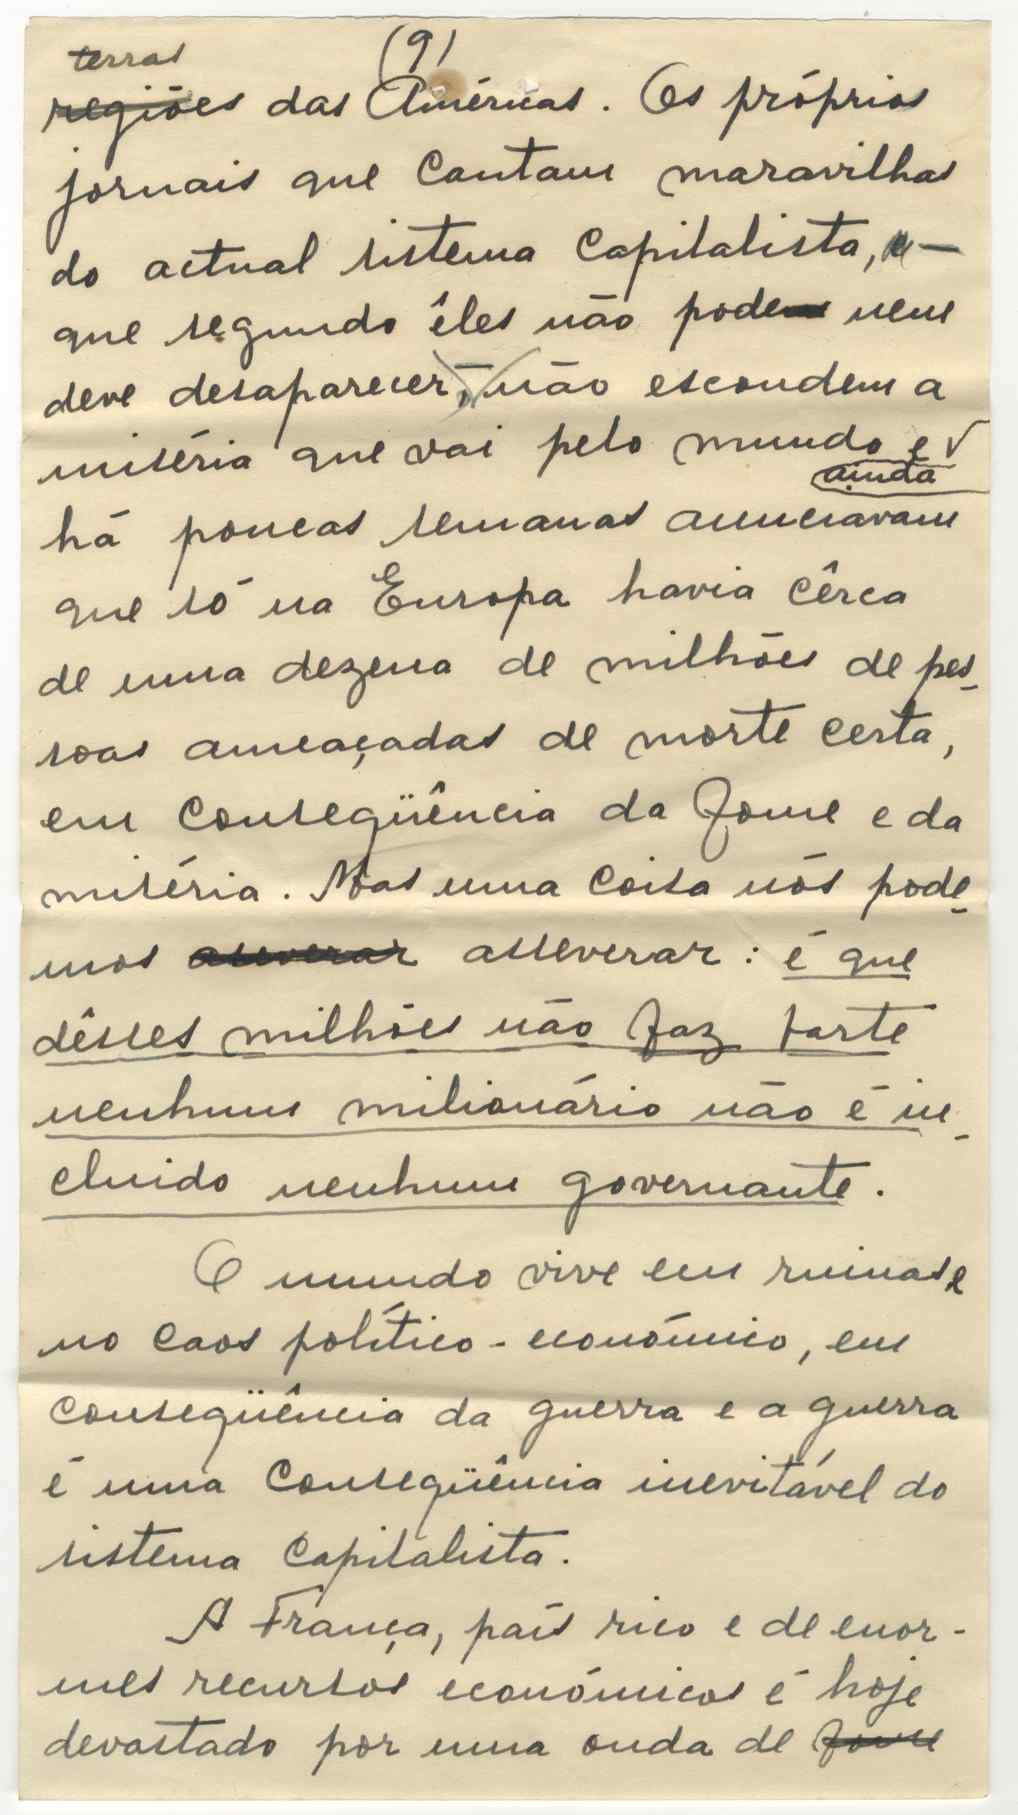 (9)
terras
regiões das Américas. Os próprios
jornais que cantam maravilhas
do actual sistema capitalista, —
que segundo êles não pode nem
deve desaparecer, — não escondem a
miséria que vai pelo mundo e
ainda
há poucas semanas anunciavam
que só na Europa havia cêrca
de uma dezena de milhões de pes-
soas ameaçadas de morte certa,
em conseqüência da fome e da
miséria. Mas uma coisa nós pode-
mos asseverar asseverar: é que
dêsses milhões não faz parte
nenhum milionário não é in-
cluido nenhum governante.
O mundo vive em ruinas e
no caos político-económico, em
conseqüência da guerra e a guerra
é uma conseqüência inevitável do
sistema capitalista.
A França, país rico e de enor-
mes recursos económicos é hoje
devastado por uma onda de fome